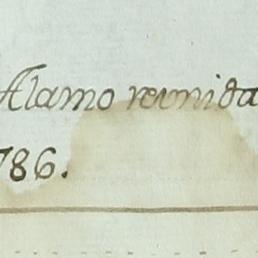 Alamo reunida
786.